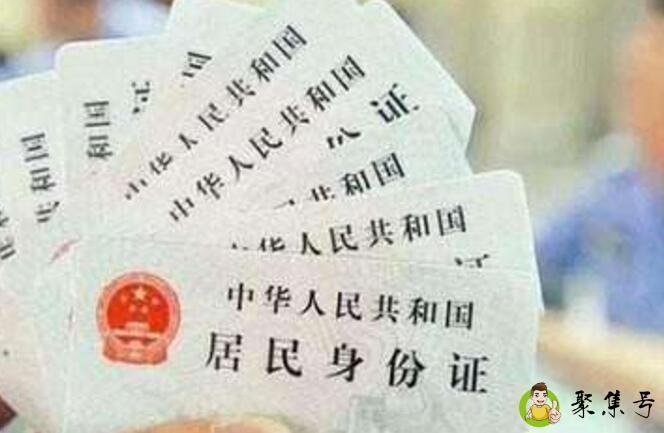 和国
民共和国
和国
证
中华人民共和国
中华人民共和国
份证
民共和国
证
华人民共和国
证
中华人民共和国
居民身份证
聚集号